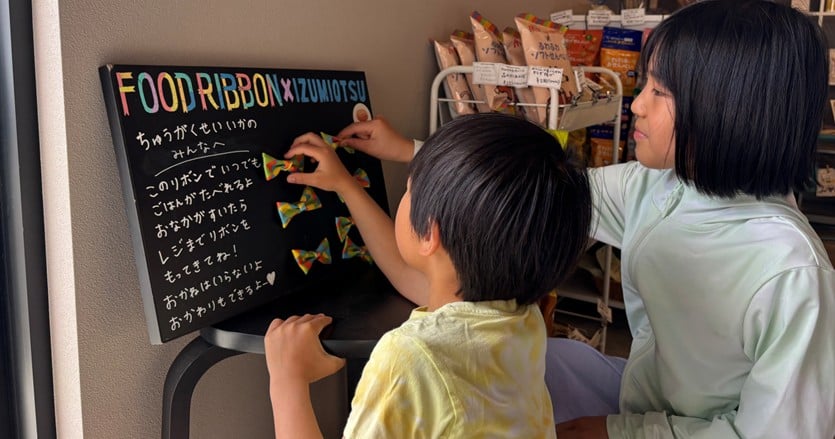 FOOD RIBBON×IZUMIOTSU
ちゅうがくせいいかの
みんなへ
このリボンで いつでも
ごはんがたべれるよ
おなかがすいたら
レジまでリボンを
もってきてね！
おかねはいらないよ
おかわりもできるよー♡
ふわふわ
ソフトせんべい